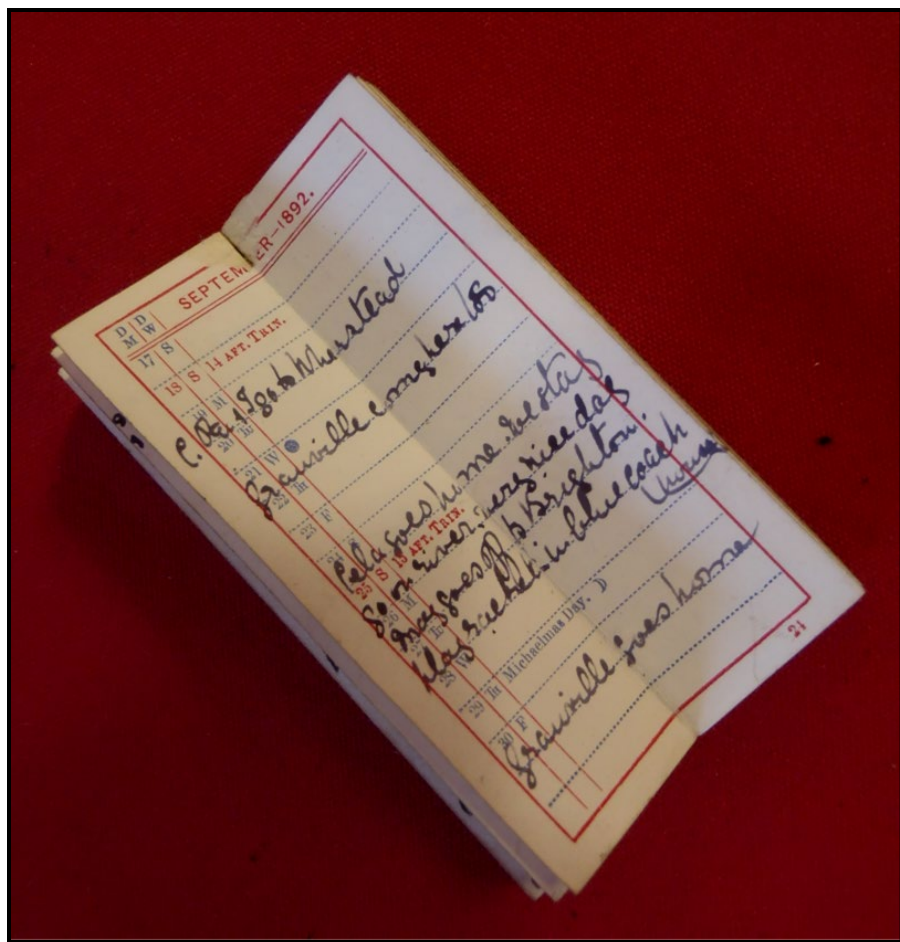 SEPTEMBER–1892.
D M D W
17 S
18 S 14 AFT. TRIN.
19 M
C. R. & I go to Wherstead
20 Tu
21 W
Granville comes here too
22 Th
23 F
24 S
Lela goes home. We stay
25 S 15 AFT. TRIN.
go on river, very nice day
26 M
May goes to Brighton.
27 Tu
play in blue coach
28 W
29 Th Michaelmas Day. D
30 F
Granville goes home
24